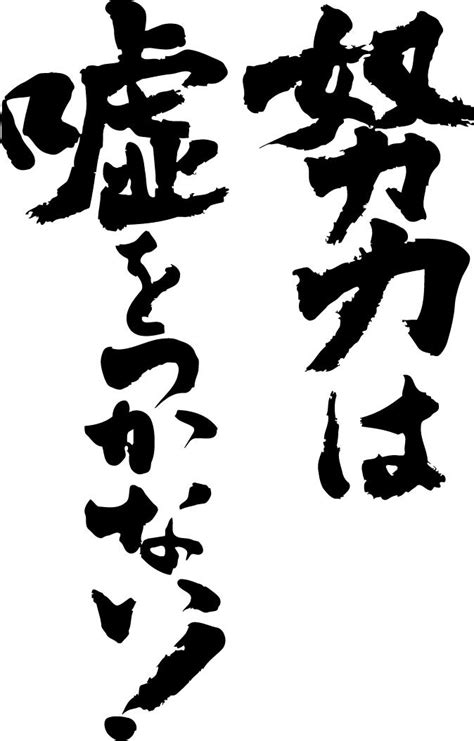 努力は
嘘をつかない!